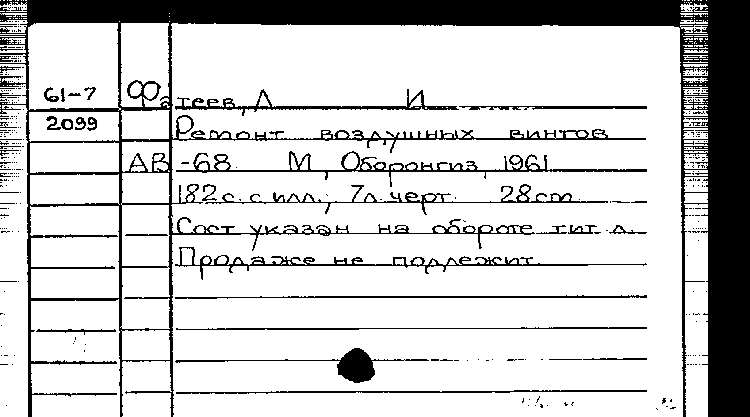 61-7 Фатеев, Л И
2099 Ремонт воздушных винтов
АВ-68 М, Оборонгиз, 1961
182 с. с илл.; 7 л. черт. 28 cm
Сост указан на обороте тит л.
Продаже не подлежит.